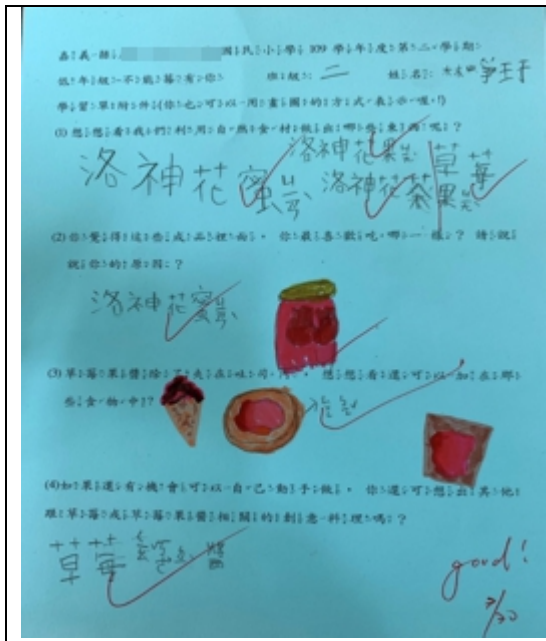 嘉義縣 國民小學109學年度第二學期
低年級-不能莓有你 班級:二 姓名:
學習單附件(你也可以用畫圖的方式表示喔!)
(1)想想看我們利用自然食材做出哪些東西呢?
洛神花果ㄐㄧㄤˋ
洛神花蜜ㄐㄧㄢˋ 洛神花茶 草莓果ㄐㄧㄤˋ
(2)你覺得這些成品裡面。你最喜歡吃哪一樣?請說
說你的原因?
洛神花蜜ㄐㄧㄢˋ
(3)草莓果醬除了夾在吐司內。想想看還可以加在那
些食物中?
(4)如果還有機會可以自己動手做。你還可想出其他
跟草莓或草莓果醬相關的創意料理嗎?
草莓 醬
good!